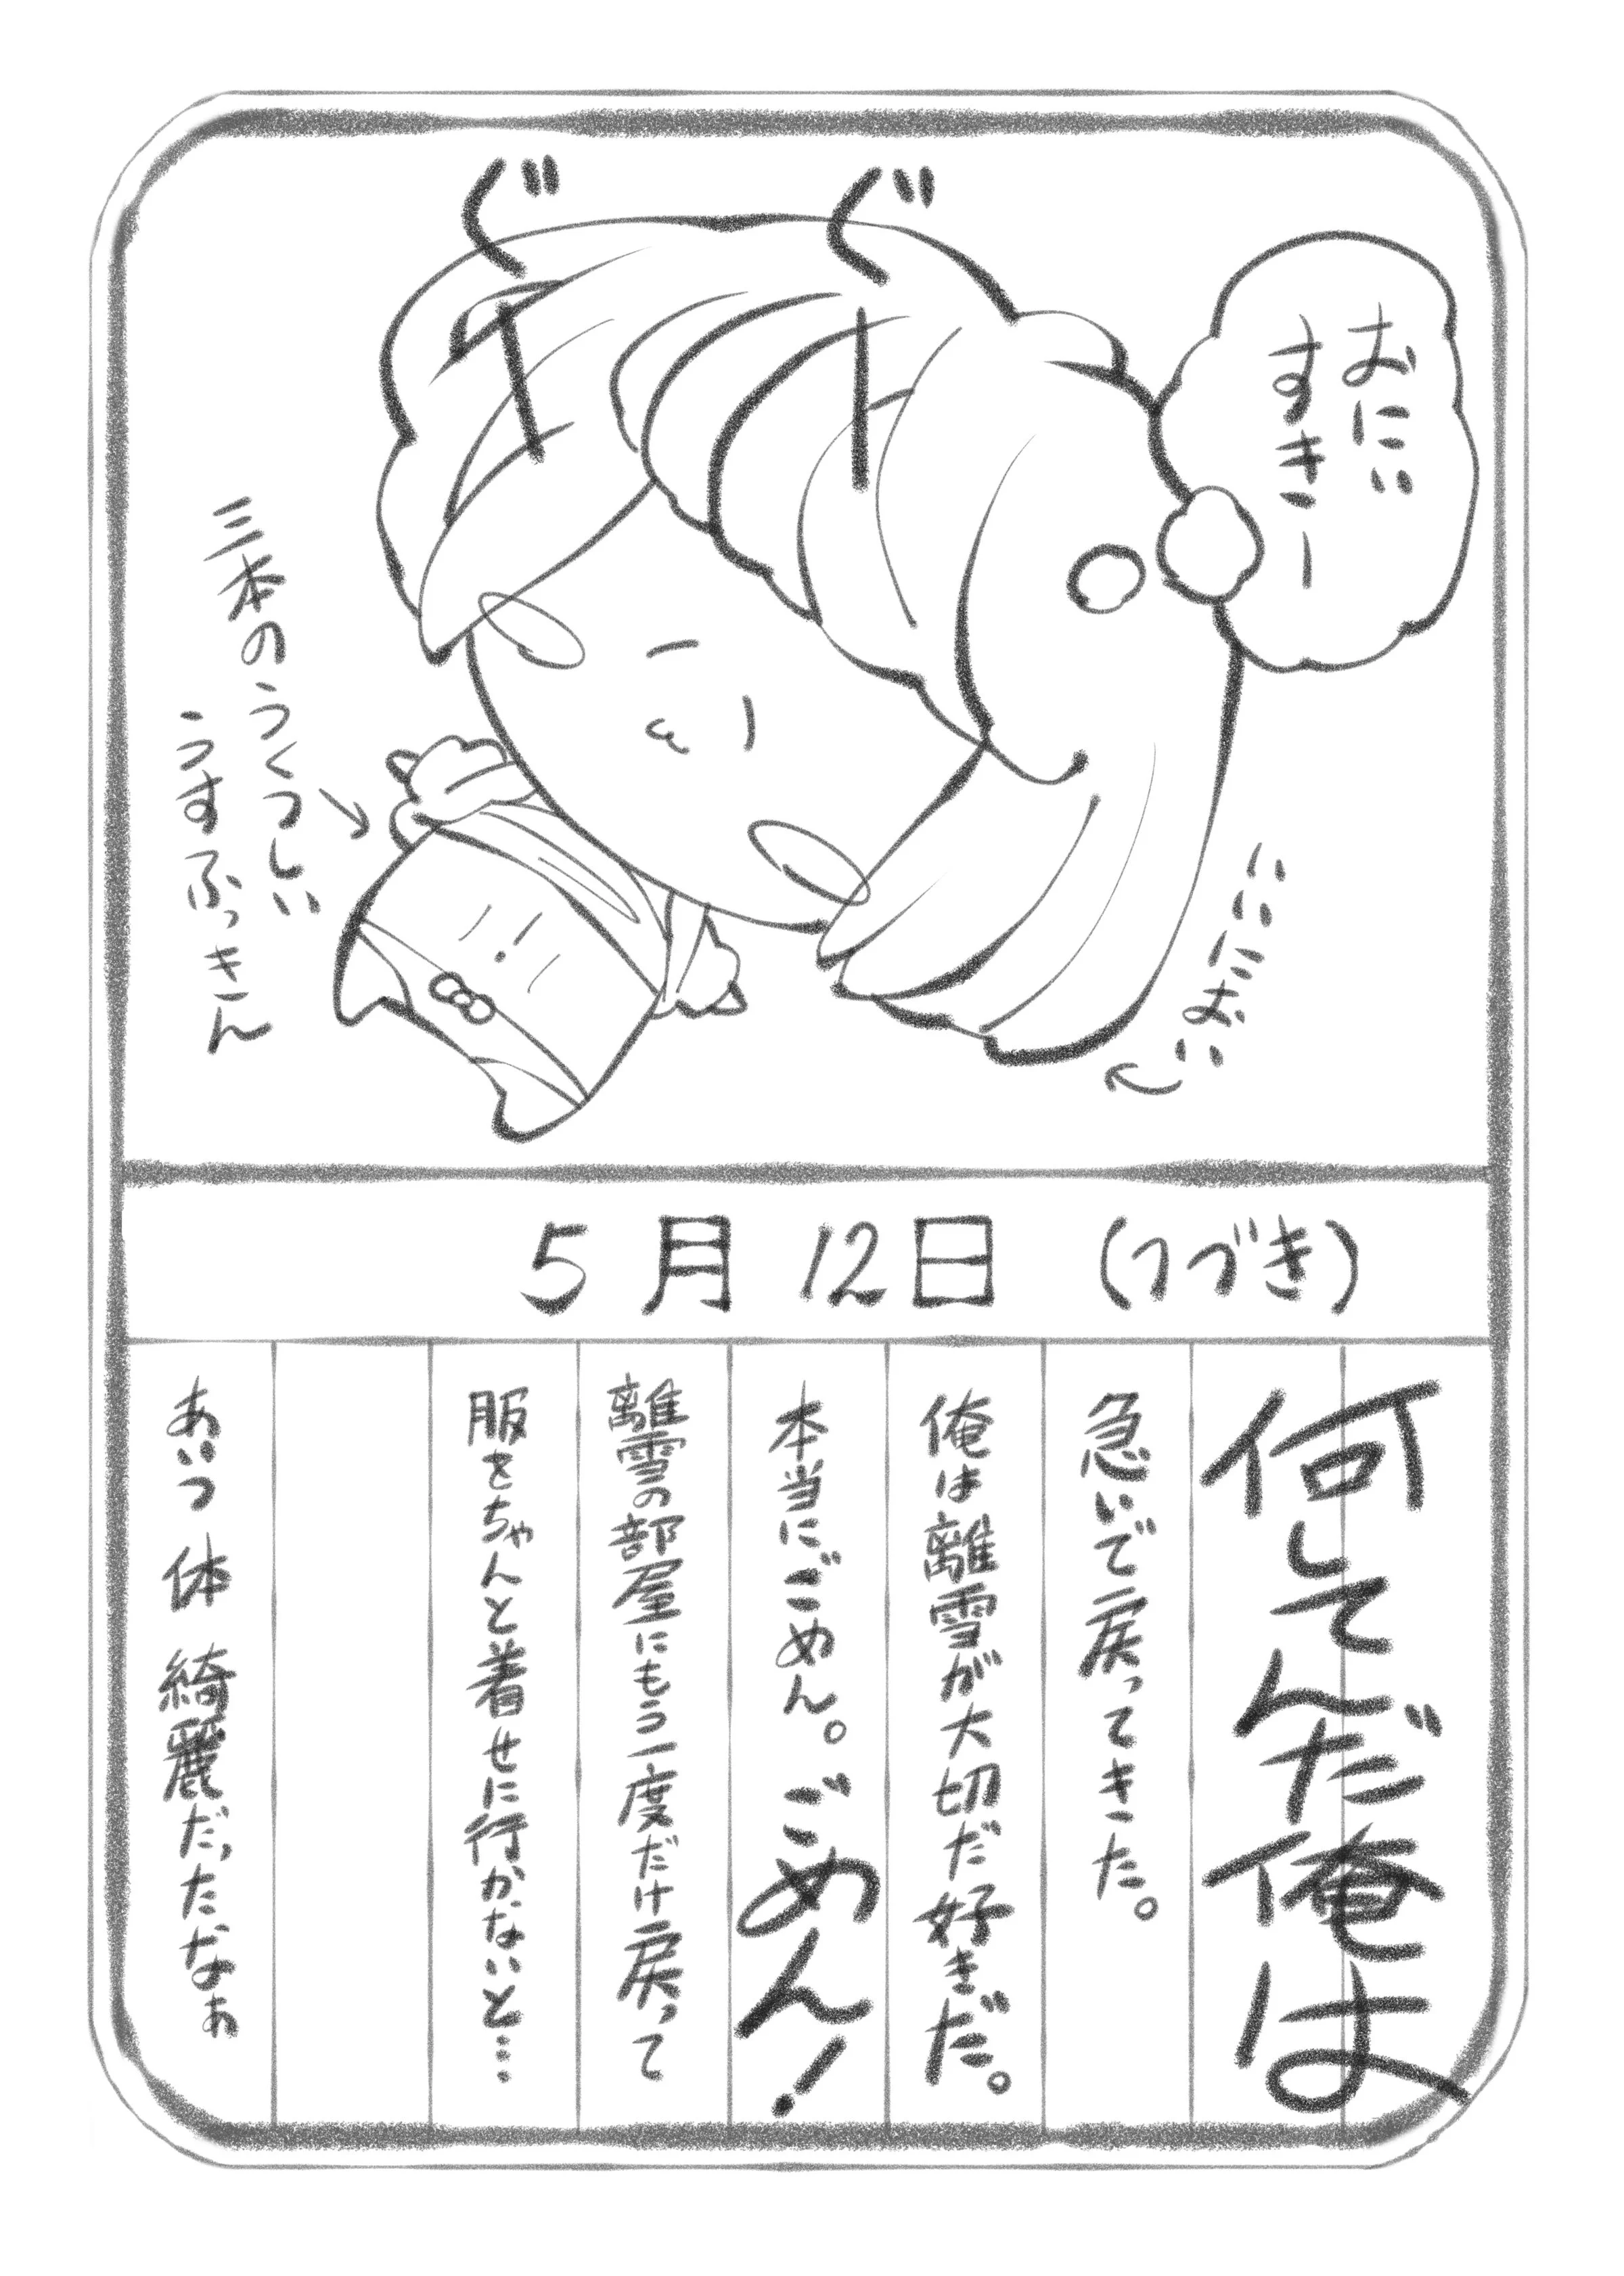 おにい
すきー
ぐー
ぐー
いいにおい
三本のうつくしい
うすふっきん
5月12日 (つづき)
何してんだ俺は
急いで戻ってきた。
俺は離雪が大切だ好きだ。
本当にごめん。ごめん!
離雪の部屋にもう一度だけ戻って
服をちゃんと着せに行かないと…
あいつ 体 綺麗だったなぁ